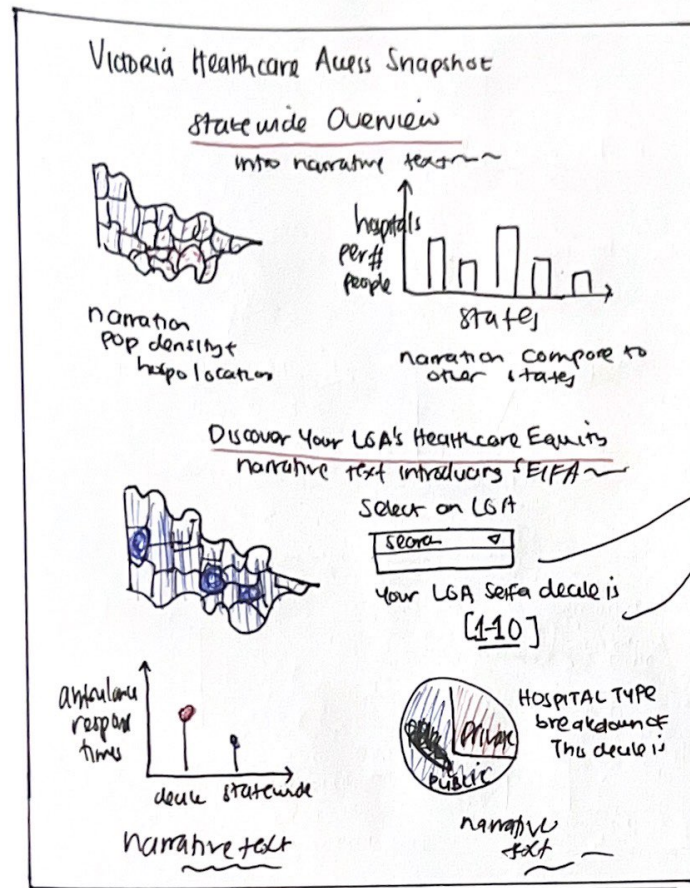 Victoria Healthcare Access Snapshot
Statewide Overview
intro narrative text
hospitals
per #
people
states
narration
pop density +
hospo location
narration compare to
other states
Discover Your LGA's Healthcare Equity
narrative text introducing SEIFA
Select an LGA
search
Your LGA Seifa decile is
[1-10]
ambulance
response
times
decile statewide
narrative text
Private
PUBLIC
HOSPITAL TYPE
breakdown of
This decile is
narrative
text